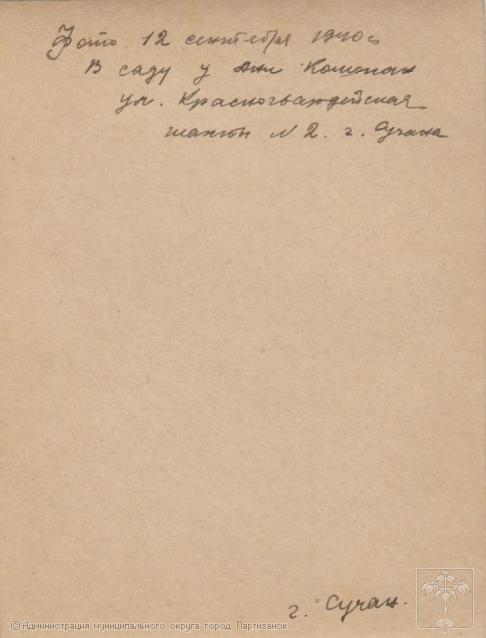 Фото 12 сентября 1940г
В саду у
ул. Красногвардейская
шахты N 2. г. Сучана
г. Сучан.
© Администрация муниципального округа город Партизанск